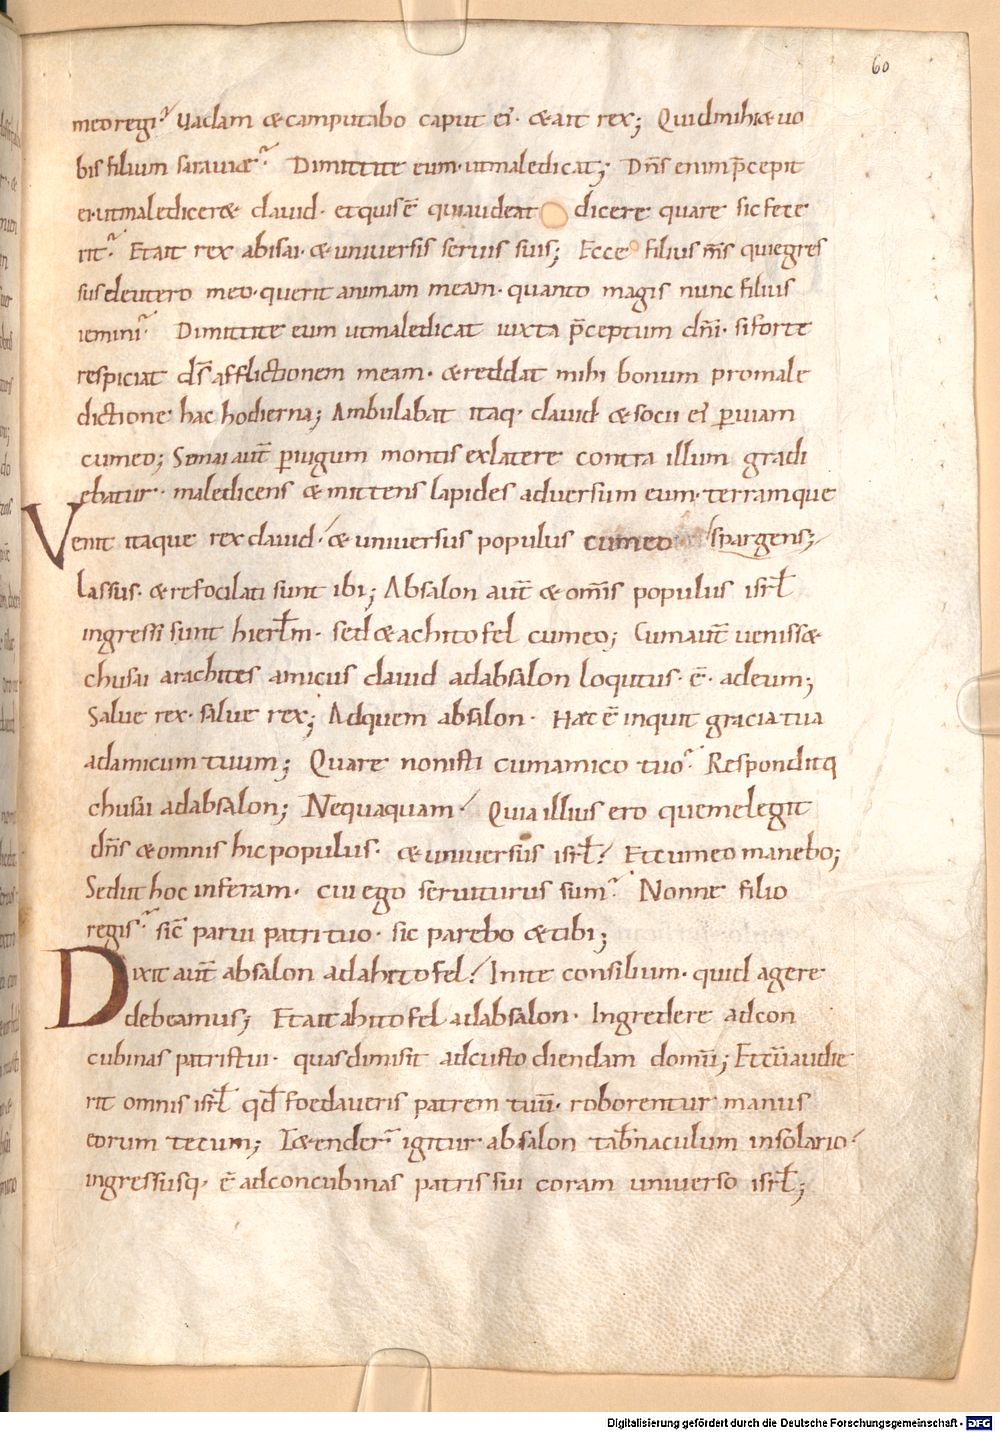 60
meo regi? Vadam & camputabo caput ei· & ait rex; Quid mihi & uo
bis filium saruiæ? Dimittite eum· ut maledicat; Dn̄s enim p̄cepit
ei· ut malediceret dauid· et quis ē qui audeat dicere quare sic fece
rit? Et ait rex abisai· & uniuersis seruis suis; Ecce filius m̄s qui egres
sus de utero meo· querit animam meam· quanto magis nunc filius
iemini? Dimittite eum ut maledicat iuxta p̄ceptum dn̄i· si forte
respiciat dn̄s afflictionem meam· & reddat mihi bonum pro male
dictione hac hodierna; Ambulabat itaq· dauid & socii ei p uiam
cum eo; Semai aut̄ p iugum montis ex latere contra illum gradi
ebatur· maledicens & mittens lapides aduersum eum· terramque
spargens;
Venit itaque rex dauid· & uniuersus populus cum eo
lassus· & refocilati sunt ibi; Absalon aut̄ & om̄is populus isrł
ingressi sunt hierłm· sed & achitofel cum eo; Cum aut̄ uenisset
chusai arachites amicus dauid ad absalon loqutus· ē· ad eum;
Salue rex· salue rex; Ad quem absalon· Hæc ē inquit gracia tua
ad amicum tuum; Quare non isti cum amico tuo? Respondit q
chusai ad absalon; Nequaquam· Quia illius ero quem elegit
dn̄s & omnis hic populus· & uniuersus isrł? Et cum eo manebo;
Sed ut hoc inferam· cui ego seruiturus sum? Nonne filio
regis? sic̄ parui patri tuo· sic parebo & tibi;
Dixit aut̄ absalon ad ahitofel? Inite consilium· quid agere
debeamus; Et ait ahitofel ad absalon· Ingredere ad con
cubinas patris tui· quas dimisit ad custodiendam domū; Et cū audie
rit omnis isrł qd̄ foedaueris patrem tuū· roborentur manus
eorum tecum; T&ender̄ igitur absalon tab̄naculum in solario·
ingressusq· ē ad concubinas patris sui coram uniuerso isrł;
Digitalisierung gefördert durch die Deutsche Forschungsgemeinschaft - DFG